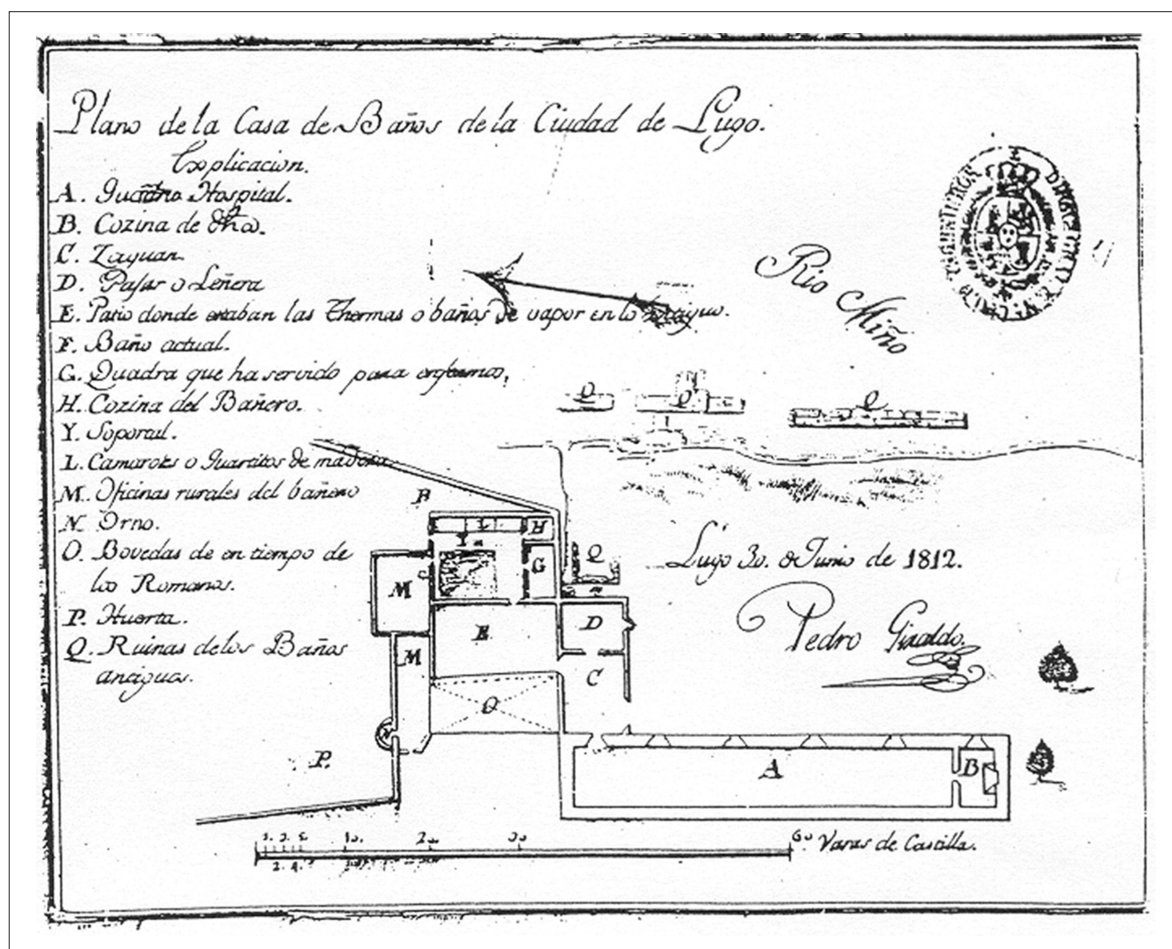 Plano de la Casa de Baños de la Ciudad de Lugo.
Explicacion.
A. Hospital.
B. Cozina de
C. Zaguan
D. Pajar o Leñera
E. Patio donde estaban las Thermas o baños de vapor en lo
F. Baño actual.
G. Quadra que ha servido para enfermos,
H. Cozina del Bañero.
Y. Soportal.
L. Camarotes o Quartitos de madera
M. Oficinas rurales del bañero
N. Orno.
O. Bovedas de en tiempo de
los Romanos.
P. Huerta.
Q. Ruinas de los Baños
antiguos.
Rio Miño
Q Q Q
P
L H
Y
G
Q
M
E
D
M
C
O
P.
A
B
Lugo 30. de Junio de 1812.
Pedro Giraldo.
1. 3. 5. 10. 20 30 60 Varas de Castilla.
2. 4.